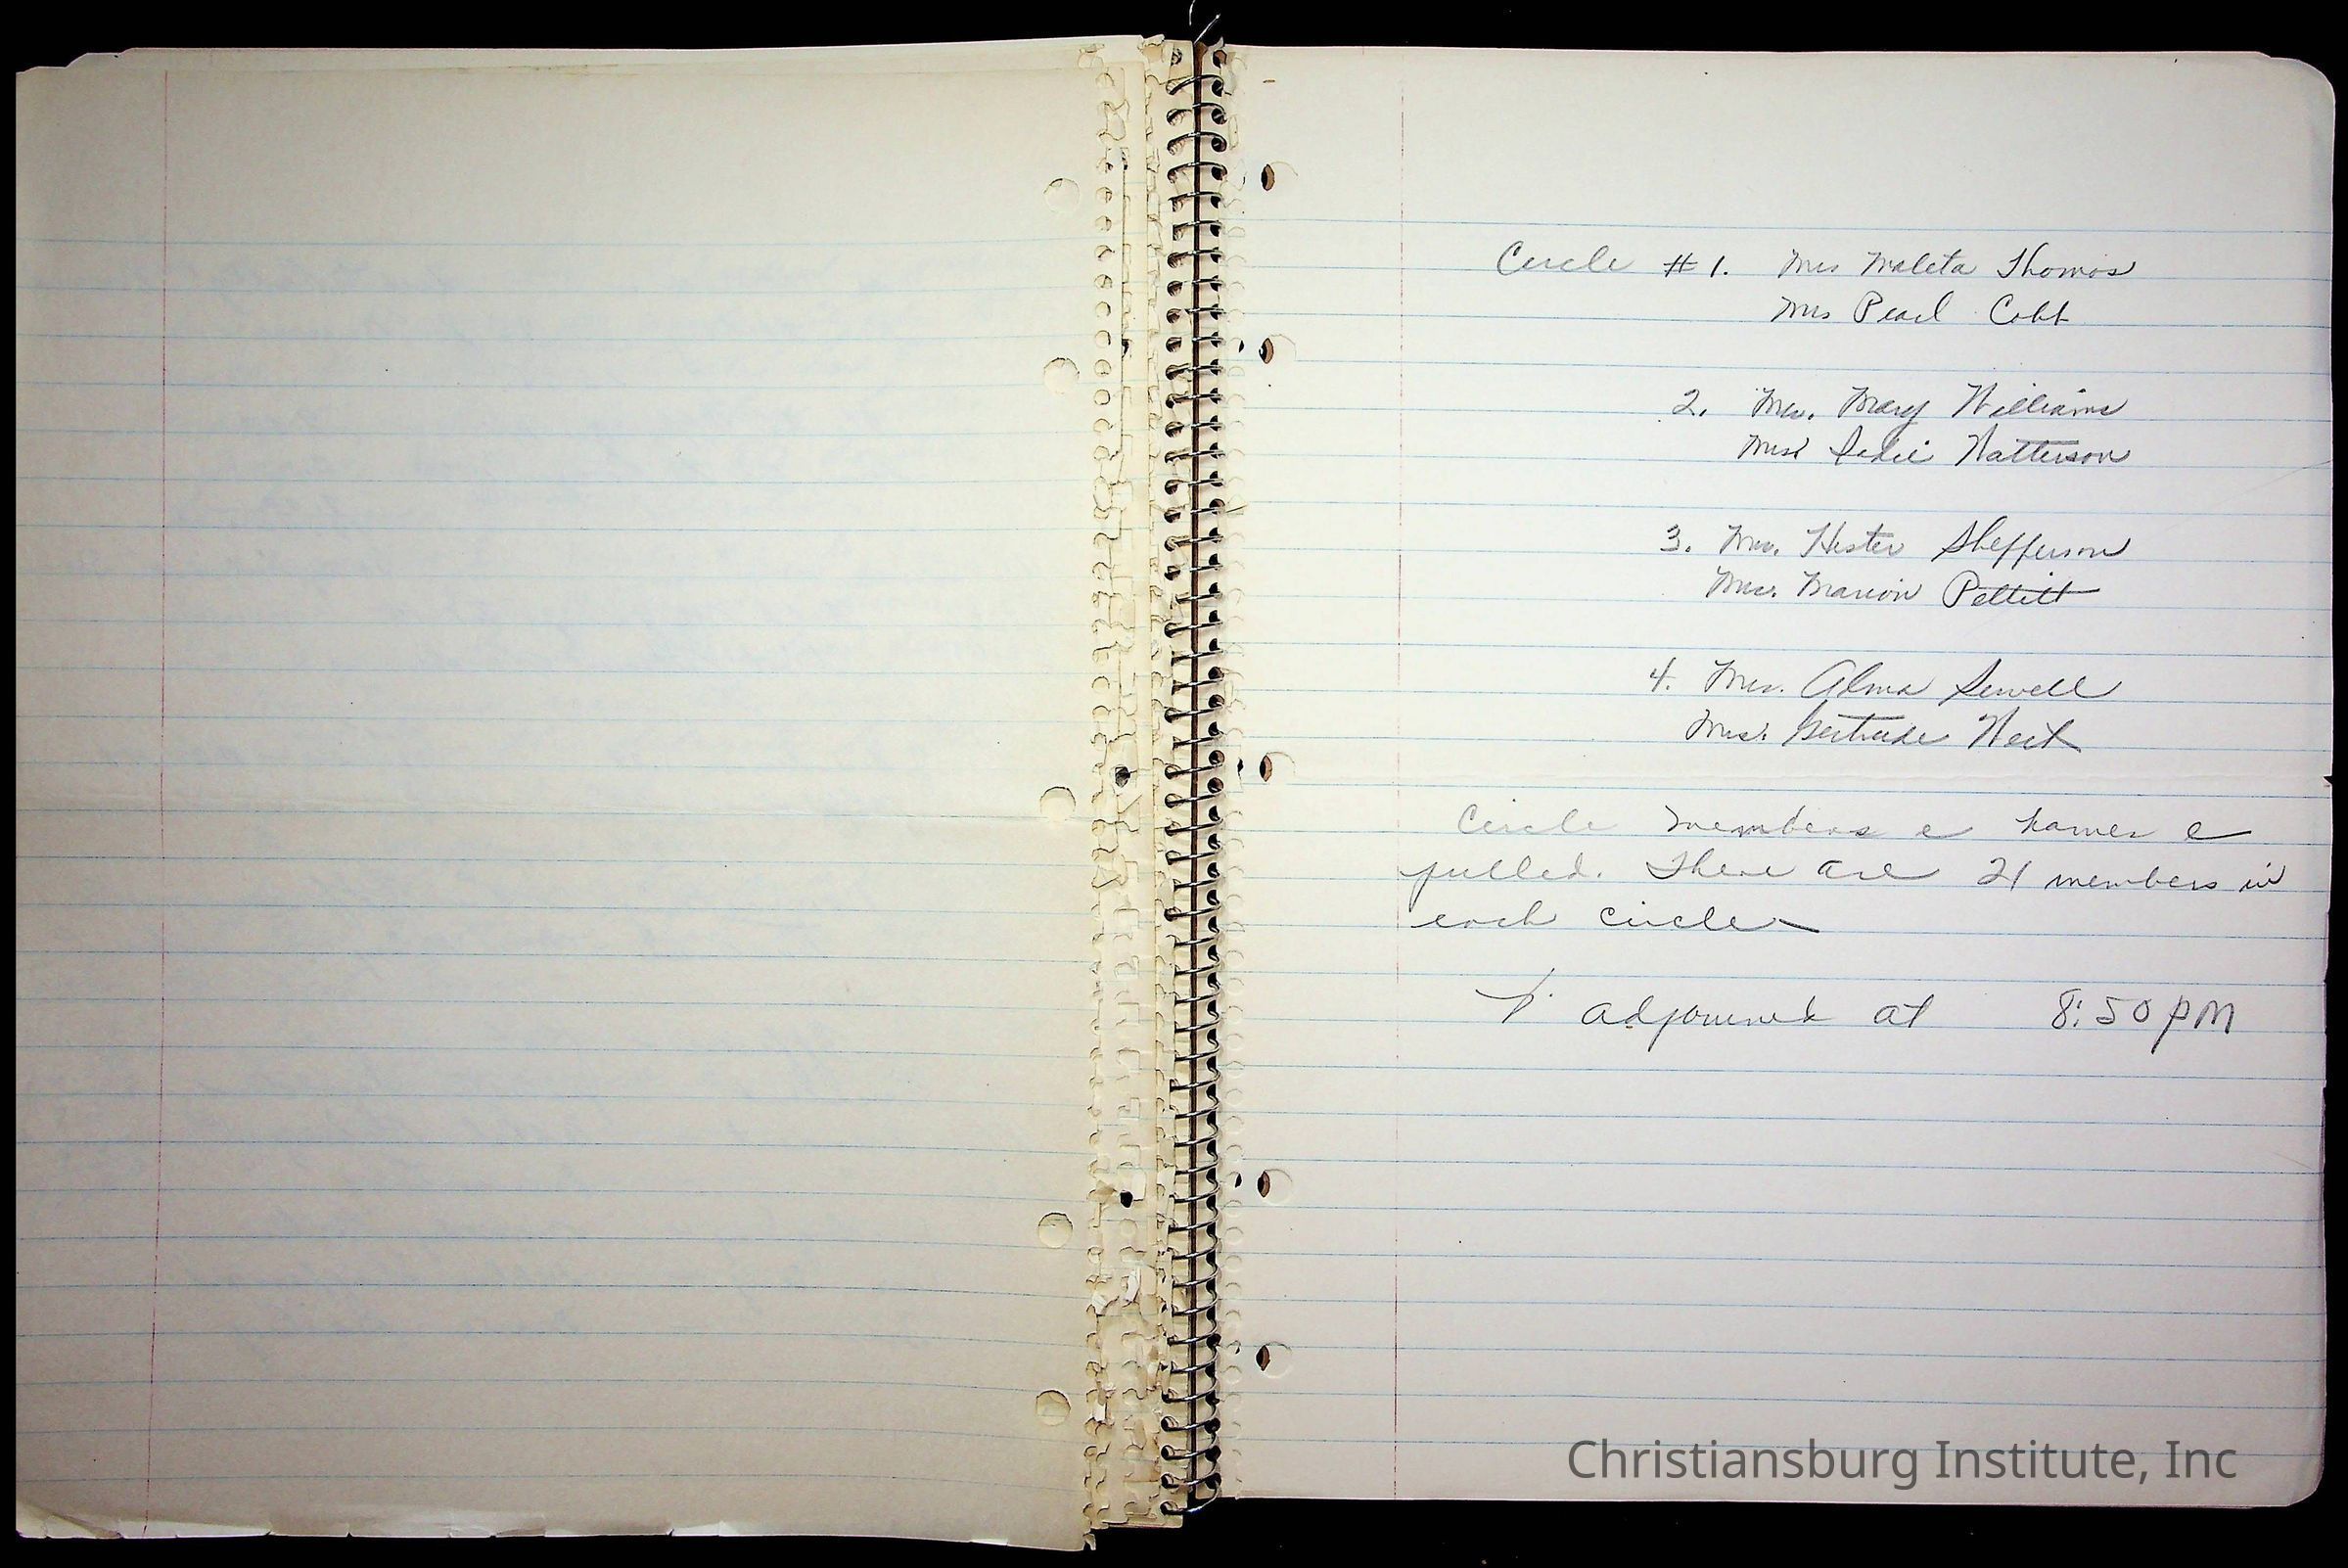 Circle # 1. Mrs Maleta Thomas
Mrs Pearl Cobb
2. Mrs. Mary Williams
Miss Sadie Watterson
3. Mrs. Hester Shefferson
Mrs. Marion Pettitt
4. Mrs. Alma Sewell
Mrs. Gertrude West
Circle members names
pulled. There are 21 members in
each circle
adjourned at 8:50 PM
Christiansburg Institute, Inc